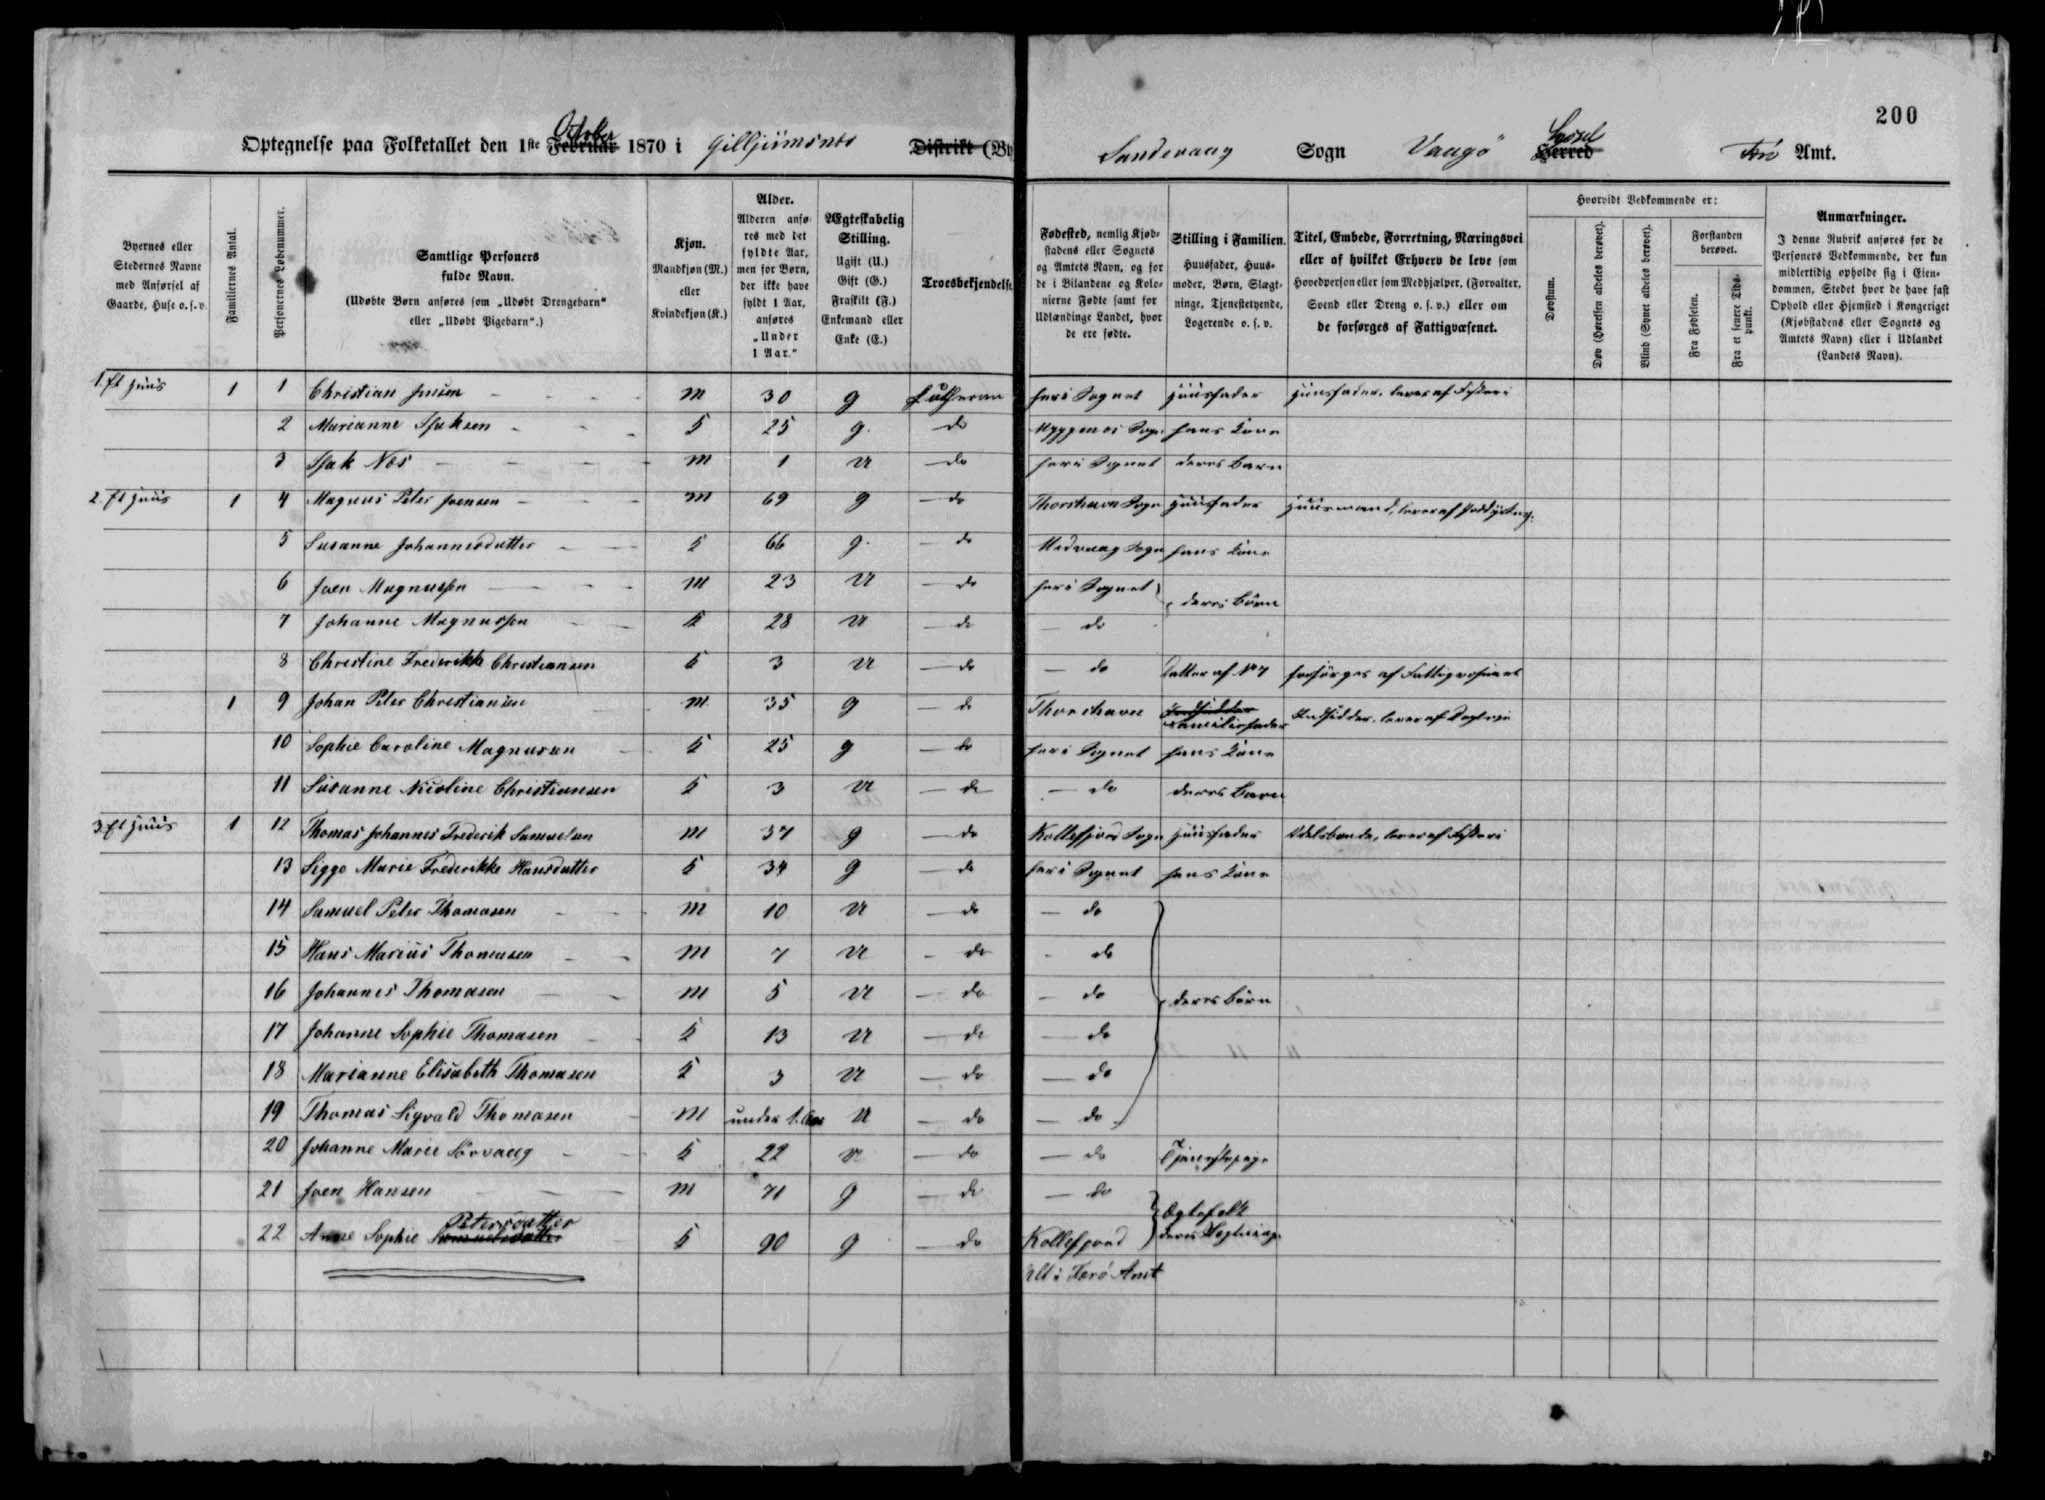 200
Optegnelse paa Folketallet den 1ste Februar October 1870 i Gilljumsnæs Distrikt (By
Sandevaag Sogn Vaagö Herred Syssel Færö Amt.
Byernes eller Stedernes Navne med Anførsel af Gaarde, Huse o. s. v.
Familiernes Antal.
Personernes Løbenummer.
Samtlige Personers fulde Navn.
(Udøbte Børn anføres som „Udøbt Drengebarn“ eller „Udøbt Pigebarn“.)
Kjøn.
Mandkjøn (M.) eller Kvindekjøn (K.)
Alder.
Alderen anføres med det fyldte Aar, men for Børn, der ikke have fyldt 1 Aar, anføres „Under 1 Aar.“
Ægteskabelig Stilling.
Ugift (U.)
Gift (G.)
Fraskilt (F.)
Enkemand eller Enke (E.)
Troesbekjendelse
Fødested, nemlig Kjøbstadens eller Sognets og Amtets Navn, og for de i Bilandene og Kolonierne Fødte samt for Udlændinge Landet, hvor de ere fødte.
Stilling i Familien.
Huusfader, Huusmoder, Børn, Slægtninge, Tjenestetyende, Logerende o. s. v.
Titel, Embede, Forretning, Næringsvei eller af hvilket Erhverv de leve som Hovedperson eller som Medhjælper, (Forvalter, Svend eller Dreng o. s. v.) eller om de forsørges af Fattigvæsenet.
Hvorvidt Vedkommende er:
Døvstum.
Døv (Hørelsen aldeles berøvet).
Blind (Synet aldeles berøvet).
Forstanden berøvet.
Fra Fødselen.
Fra et senere Tidspunkt.
Anmærkninger.
I denne Rubrik anføres for de Personers Vedkommende, der kun midlertidig opholde sig i Eiendommen, Stedet hvor de have fast Ophold eller Hjemsted i Kongeriget (Kjøbstadens eller Sognets og Amtets Navn) eller i Udlandet (Landets Navn).
1. et Huus 1 1 Christian Jensen M 30 g Lutheran her i Sognet Huusfader Huusfader, lever af Fiskeri
2 Marianne Isaksen K 25 g. do Myggenæs Sogn hans Kone
3 Isak Næs M 1 U do her i Sognet deres Barn
2. et Huus 1 4 Magnus Peter Joensen M 69 g do Thorshavn Sogn Huusfader Huusmand, lever af
5 Susanne Johannesdatter K 66 g. do Midvaag Sogn hans Kone
6 Joen Magnussen M 23 U do her i Sognet deres Börn
7 Johanne Magnussen K 28 U do do
8 Christine Frederikke Christiansen K 3 U do do Datter af No 7 forsörges af Fattigvæsenet
1 9 Johan Peter Christiansen M 35 g do Thorshavn Indsidder Familiefader Indsidder, lever af Dagleie
10 Sophie Caroline Magnusen K 25 g do her i Sognet hans Kone
11 Susanne Nicoline Christiansen K 3 U do do deres Barn
3. et Huus 1 12 Thomas Johannes Frederik Samuelsen M 37 g do Kollefjord Sogn Huusfader Odelsbonde, lever af Fiskeri
13 Siggo Marie Frederikke Hansdatter K 34 g do her i Sognet hans Kone
14 Samuel Peter Thomasen M 10 U do do
15 Hans Marius Thomasen M 7 U do do
16 Johannes Thomasen M 5 U do do deres Börn
17 Johanne Sophie Thomasen K 13 U do do
18 Marianne Elisabeth Thomasen K 3 U do do
19 Thomas Sigvald Thomasen M under 1. Aar U do do
20 Johanne Marie Sörvaag K 22 U do do Tjenestepige
21 Joen Hansen M 71 g do do
22 Anne Sophie Samuelsdatter Petersdatter K 90 g do Kollefjord Ægtefolk deres
Alt i Færö Amt